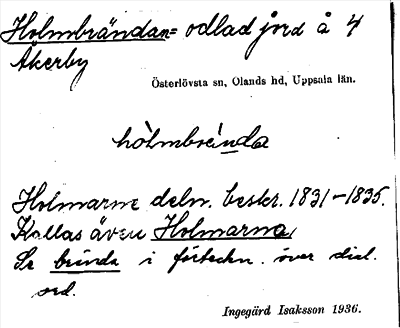 Holmbrändan= odlad jord å 4
Åkerby
Österlövsta sn, Olands hd, Uppsala län.
hòlmbreǹda
Holmarne delm. beskr. 1831-1835.
Kallas även Holmarna
Se brända i förteckn. över dial.
ord.
Ingegärd Isaksson 1936.